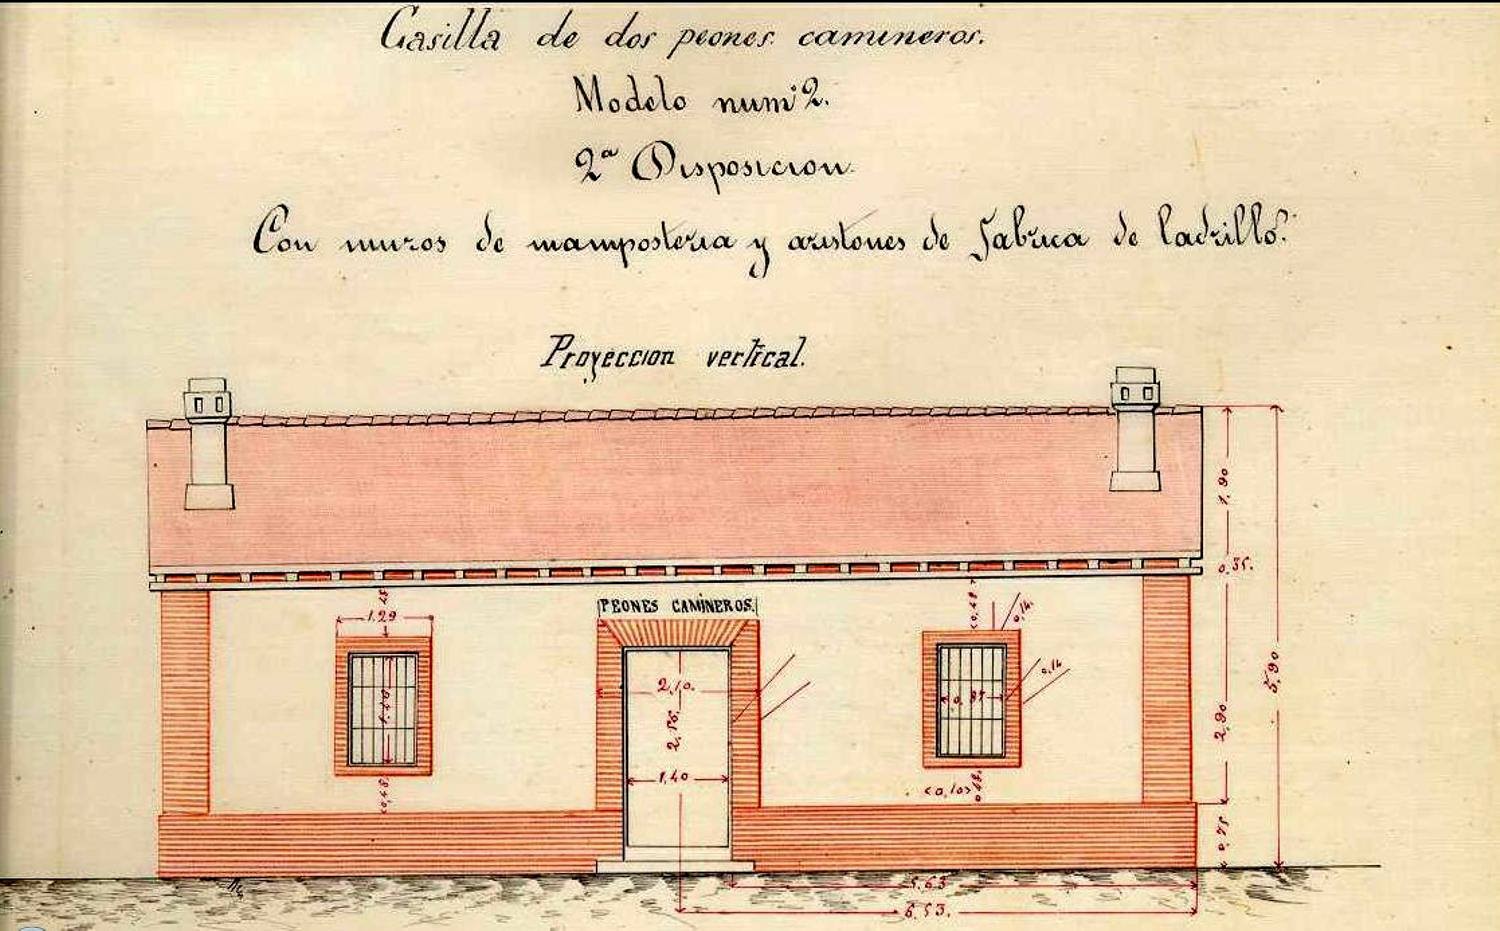 Casilla de dos peones camineros.
Modelo num° 2.
2ª Disposicion
Con muros de mamposteria y aristones de fabrica de ladrillo.
Proyeccion vertical.
1,90
0,35.
PEONES CAMINEROS.
1,29
0,48
0,14
0,14
2,10.
2,56.
0,87
5,90
2,90
1,40
0,48
<0,10>
0,48
0,75
5,63
6,53.